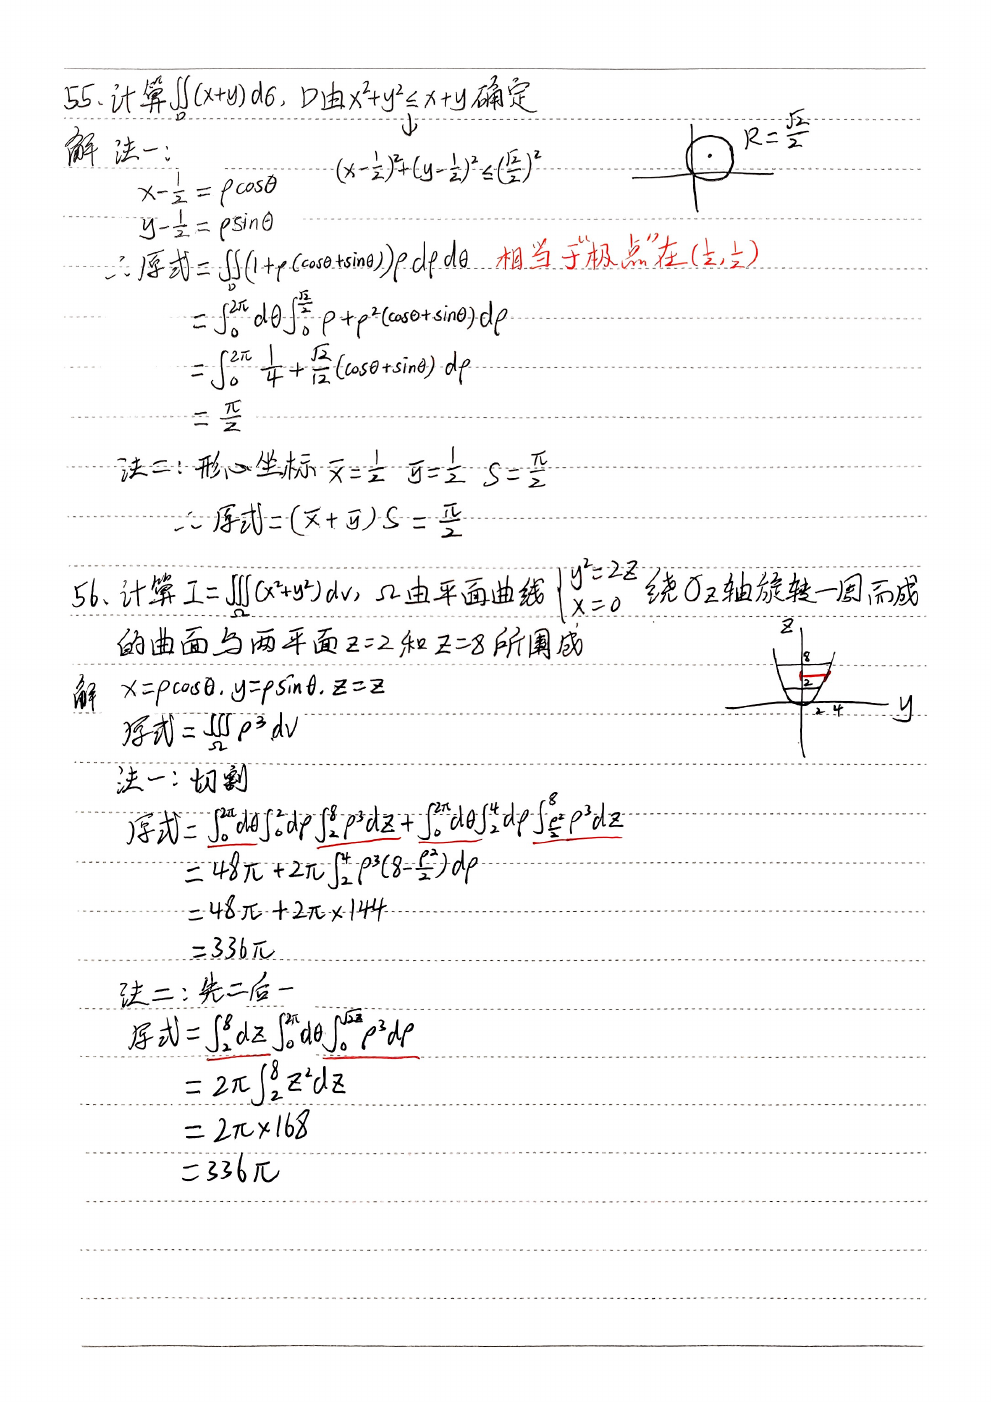 55、计算∬_D(x+y)dσ, D由x²+y²≤x+y确定
↓
解 法一: (x-1/2)²+(y-1/2)²≤(√2/2)²
R=√2/2
x-1/2=ρcosθ
y-1/2=ρsinθ
∴原式=∬_D(1+ρ(cosθ+sinθ))ρdρdθ 相当于"极点"在(1/2,1/2)
=∫₀^{2π}dθ∫₀^{√2/2}ρ+ρ²(cosθ+sinθ)dρ
=∫₀^{2π} 1/4+√2/12(cosθ+sinθ)dρ
=π/2
法二:形心坐标 x̄=1/2 ȳ=1/2 S=π/2
∴原式=(x̄+ȳ)S=π/2
56、计算I=∭_Ω(x²+y²)dv, Ω由平面曲线{y²=2z x=0 绕Oz轴旋转一周而成
的曲面与两平面z=2和z=8所围成
z 8 2 2 4 y
解 x=ρcosθ.y=ρsinθ.z=z
原式=∭_Ω ρ³dv
法一:切割
原式=∫₀^{2π}dθ∫₀²dρ∫₂⁸ρ³dz+∫₀^{2π}dθ∫₂⁴dρ∫_{ρ²/2}^8 ρ³dz
=48π+2π∫₂⁴ρ³(8-ρ²/2)dρ
=48π+2π×144
=336π
法二:先二后一
原式=∫₂⁸dz∫₀^{2π}dθ∫₀^{√2z}ρ³dρ
=2π∫₂⁸z²dz
=2π×168
=336π